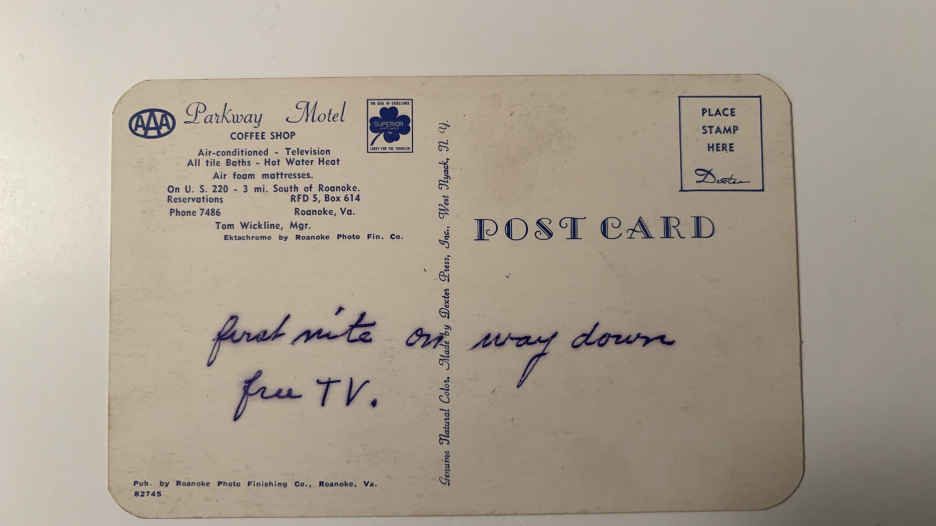 AAA
Parkway Motel
COFFEE SHOP
Air-conditioned - Television
All tile Baths - Hot Water Heat
Air foam mattresses.
On U. S. 220 - 3 mi. South of Roanoke.
Reservations RFD 5, Box 614
Phone 7486 Roanoke, Va.
Tom Wickline, Mgr.
Ektachrome by Roanoke Photo Fin. Co.
SUPERIOR
PLACE
STAMP
HERE
Dexter
Genuine Natural Color. Made by Dexter Press, Inc., West Nyack, N. Y.
POST CARD
first nite on way down
free TV.
Pub. by Roanoke Photo Finishing Co., Roanoke, Va.
82745